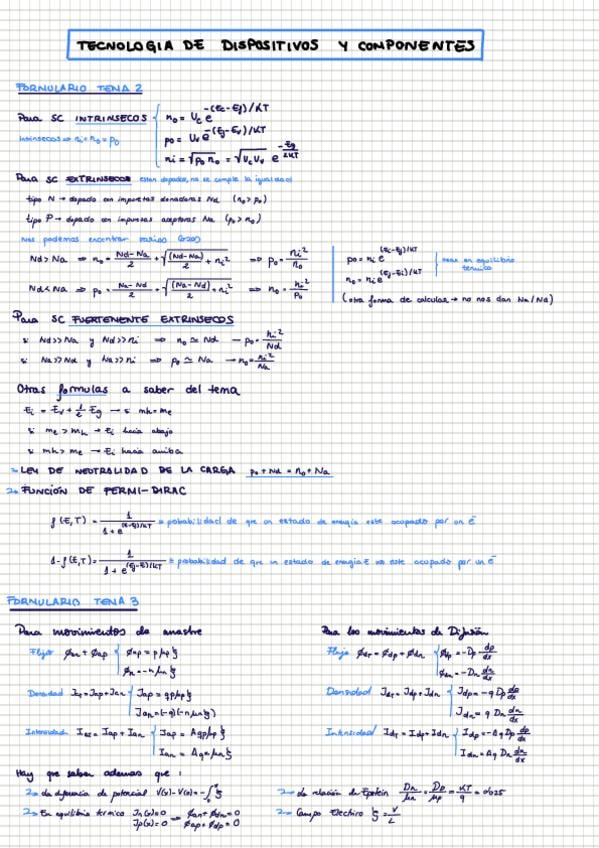 TECNOLOGIA DE DISPOSITIVOS Y COMPONENTES
FORMULARIO TEMA 2
Para SC INTRINSECOS
n₀ = Uc e^(-(Ec-Ef)/KT)
Intrinsecos ⇒ ni = n₀ = p₀
p₀ = Uv e^(-(Ef-Ev)/KT)
ni = √(p₀ n₀) = √(Uc Uv) e^(-Eg/2KT)
Para SC EXTRINSECOS estan dopados, no se cumple la igualdad
tipo N → dopado con impurezas donadoras Nd (n₀ > p₀)
tipo P → dopado con impurezas aceptoras Na (p₀ > n₀)
Nos podemos encontrar varios casos
Nd > Na ⇒ n₀ = (Nd-Na)/2 + √((Nd-Na)/2 + ni²) ⇒ p₀ = ni²/n₀
Nd < Na ⇒ p₀ = (Na-Nd)/2 + √((Na-Nd)/2 + ni²) ⇒ n₀ = ni²/p₀
p₀ = ni e^((Ei-Ef)/KT)
n₀ = ni e^((Ef-Ei)/KT)
en equilibrio termico
(otra forma de calcular → no nos dan Na/Nd)
Para SC FUERTEMENTE EXTRINSECOS
si Nd >> Na y Nd >> ni ⇒ n₀ ≃ Nd → p₀ = ni²/Nd
si Na >> Nd y Na >> ni ⇒ p₀ ≃ Na → n₀ = ni²/Na
Otras formulas a saber del tema
Ei = Ev + 1/2 Eg → si mh = me
si me > mh → Ei hacia abajo
si mh > me → Ei hacia arriba
→ LEY DE NEUTRALIDAD DE LA CARGA p₀ + Nd = n₀ + Na
→ FUNCIÓN DE FERMI-DIRAC
f(E,T) = 1/(1 + e^((E-Ef)/KT)) ≡ probabilidad de que un estado de energia este ocupado por un e⁻
1-f(E,T) = 1/(1 + e^((Ef-E)/KT)) ≡ probabilidad de que un estado de energia E no este ocupado por un e⁻
FORMULARIO TEMA 3
Para movimientos de arrastre
Flujo Φan + Φap
Φap = p μp ξ
Φan = -n μn ξ
Densidad Jat = Jap + Jan
Jap = q p μp ξ
Jan = (-q)(-n μn ξ)
Intensidad Iat = Iap + Ian
Iap = A q p μp ξ
Ian = A q n μn ξ
Para los movimientos de Difusión
Flujo Φdt = Φdp + Φdn
Φdp = -Dp dp/dx
Φdn = -Dn dn/dx
Densidad Jdt = Jdp + Jdn
Jdp = -q Dp dp/dx
Jdn = q Dn dn/dx
Intensidad Idt = Idp + Idn
Idp = -A q Dp dp/dx
Idn = A q Dn dn/dx
Hay que saber ademas que :
→ la diferencia de potencial V(x) - V(0) = -∫ ξ
→ la relación de Dn/μn = Dp/μp = KT/q = 0'025
→ En equilibrio termico Jn(x) = 0 ⇒ Φan + Φdn = 0
Jp(x) = 0 Φap + Φdp = 0
→ Campo Electrico ξ = V/L